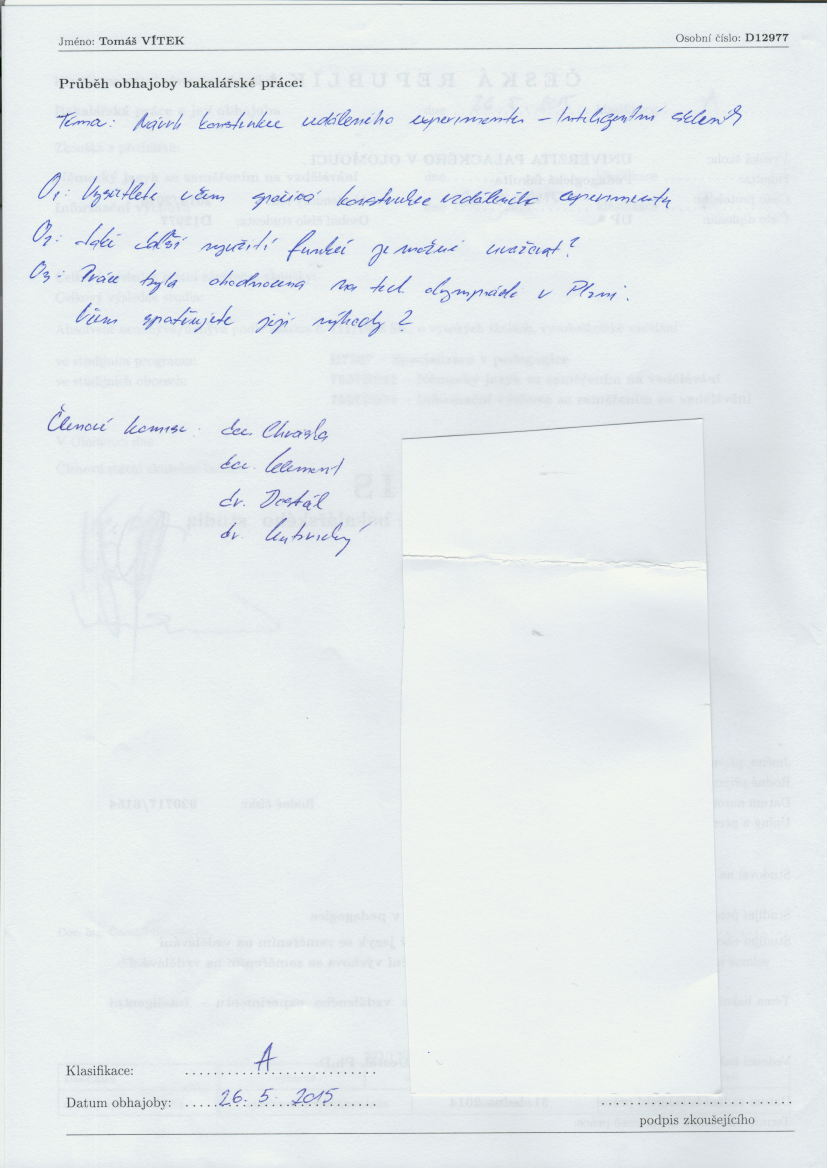 Jméno: Tomáš VÍTEK
Osobní číslo: D12977
Průběh obhajoby bakalářské práce:
Téma: Návrh konstrukce vzdáleného experimentu – Inteligentní skleník
O1: Vysvětlete v čem spočívá konstrukce vzdáleného experimentu
O2: Jaké další využití funkcí je možné uvažovat?
O3: Práce byla ohodnocena na tech. olympiádě v Plzni.
V čem spatřujete její výhody?
Členové komise: doc. Chráska
doc. Klement
dr. Dostál
dr. Kubrický
Klasifikace: A
Datum obhajoby: 26. 5. 2015
podpis zkoušejícího